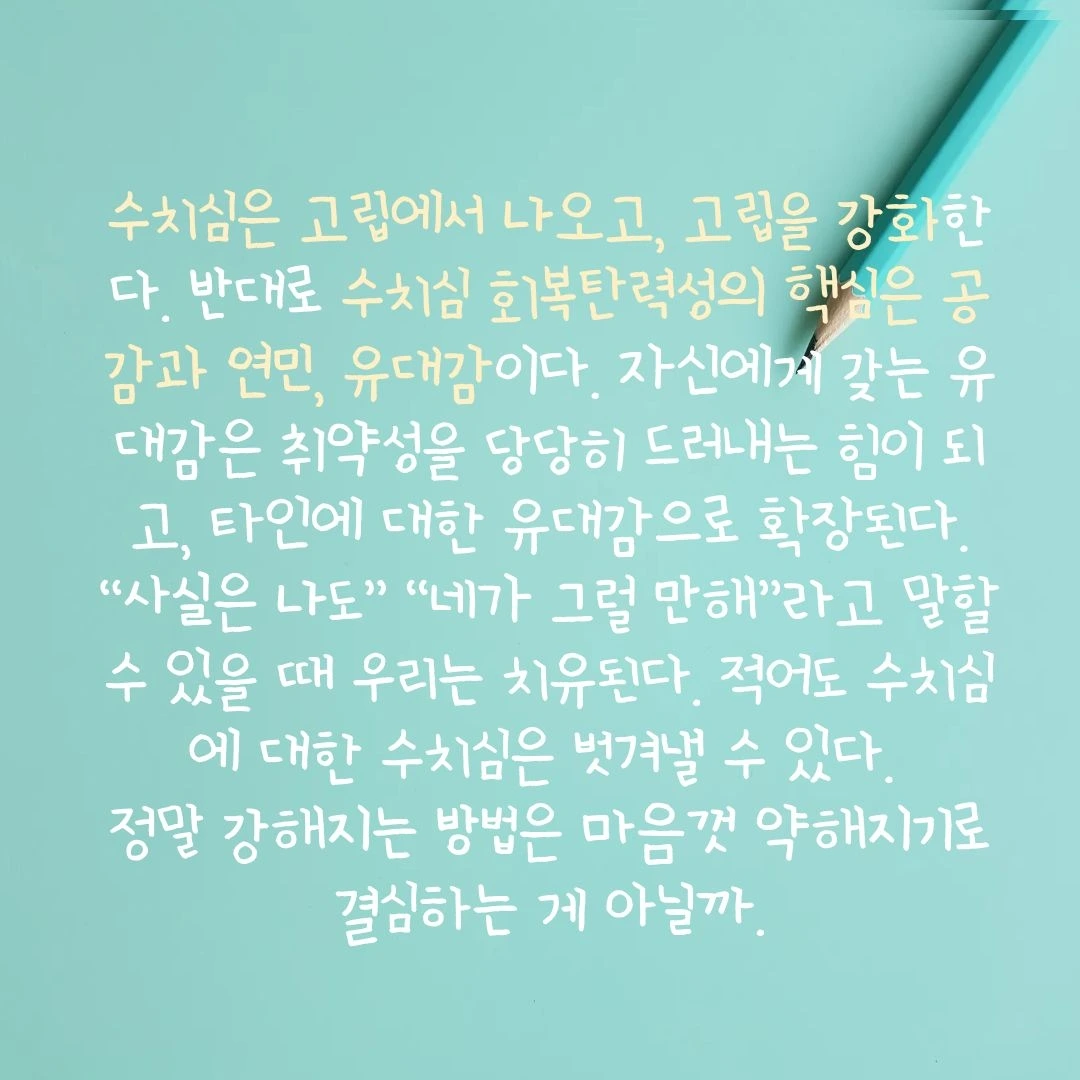 수치심은 고립에서 나오고, 고립을 강화한
다. 반대로 수치심 회복탄력성의 핵심은 공
감과 연민, 유대감이다. 자신에게 갖는 유
대감은 취약성을 당당히 드러내는 힘이 되
고, 타인에 대한 유대감으로 확장된다.
“사실은 나도” “네가 그럴 만해”라고 말할
수 있을 때 우리는 치유된다. 적어도 수치심
에 대한 수치심은 벗겨낼 수 있다.
정말 강해지는 방법은 마음껏 약해지기로
결심하는 게 아닐까.